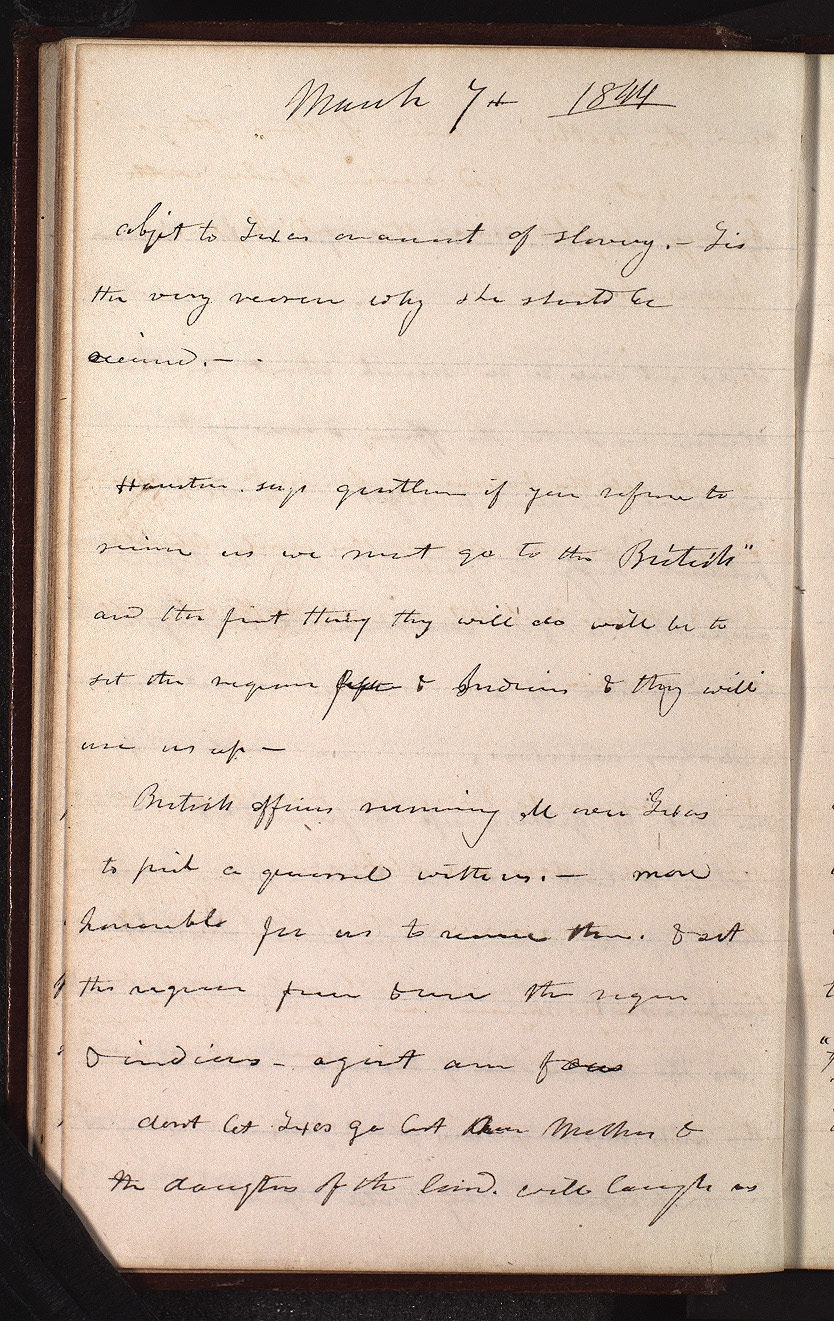 March 7th 1844
object to Texas on account of slavery. — Tis
the very reason why she should be
received. —
Houston says gentlemen if you refuse to
receive us we must go to the British"
and the first thing they will do will be to
set the negroes free & Indians & they will
use us up —
British officers running all over Texas
to pick a quarrel with us. — more
honorable for us to receive them. & set
the negroes free & use the negroes
& indians — against our foes
dont let Texas go lest our Mothers &
the daughters of the land. will laugh us